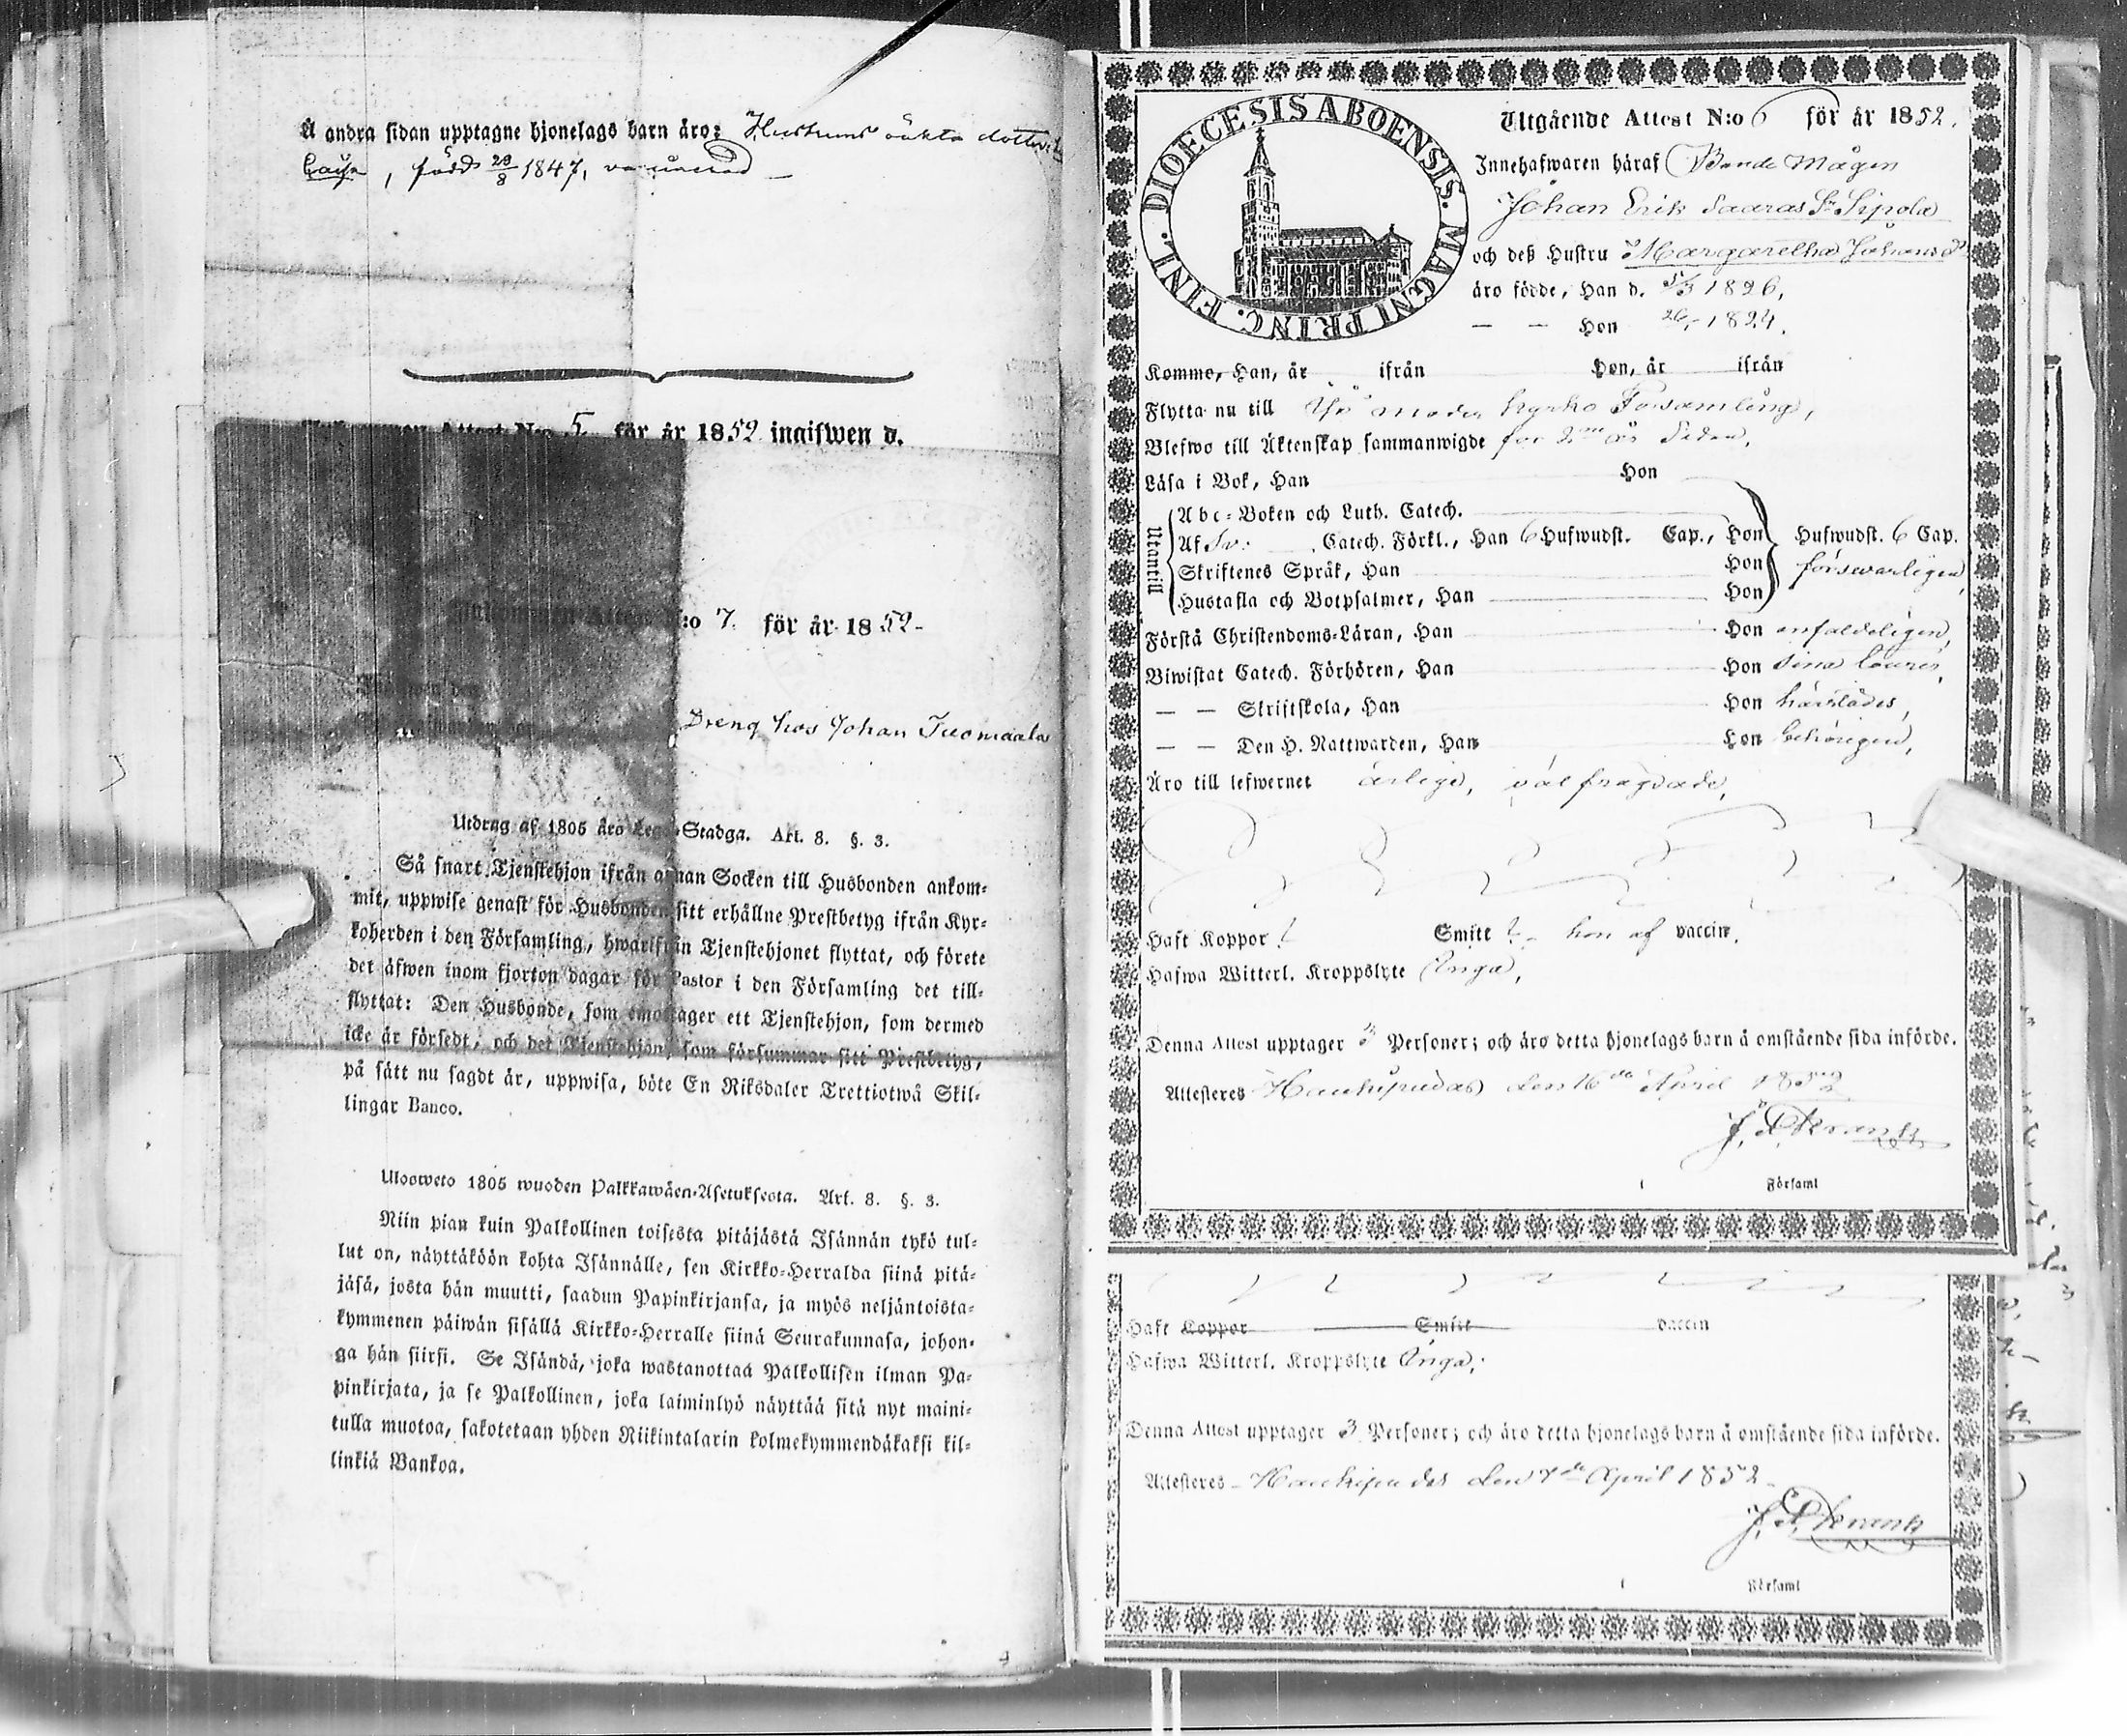 Å andra sidan upptagne hjonelags barn äro: Hustruns oäkta dotter
Caisa, född 29/8 1847, vaccinerad
Attest N:o 5. för år 1852 ingifwen d.
Inkommen Attest N:o 7. för år 1852
Ingifwen den
Dreng hos Johan Tuomaala
Utdrag af 1805 års Lego-Stadga. Art. 8. §. 3.
Så snart Tjenstehjon ifrån annan Socken till Husbonden ankom-
mit, uppwise genast för Husbonden sitt erhållne Prestbetyg ifrån Kyr-
koherden i den Församling, hwarifrån Tjenstehjonet flyttat, och förete
det äfwen inom fjorton dagar för Pastor i den Församling det till-
flyttat: Den Husbonde, som emottager ett Tjenstehjon, som dermed
icke är försedt, och det Tjenstehjon, som försummar sitt Prestbetyg,
på sätt nu sagdt är, uppwisa, böte En Riksdaler Trettiotwå Skil-
lingar Banco.
Uloosweto 1805 wuoden Palkkawäen-Asetuksesta. Art. 8. §. 3.
Niin pian kuin Palkollinen toisesta pitäjästä Isännän tykö tul-
lut on, näyttäköön kohta Isännälle, sen Kirkko-Herralda siinä pitä-
jäsä, josta hän muutti, saadun Papinkirjansa, ja myös neljäntoista-
kymmenen päiwän sisällä Kirkko-Herralle siinä Seurakunnasa, johon-
ga hän siirsi. Se Isändä, joka wastanottaa Palkollisen ilman Pa-
pinkirjata, ja se Palkollinen, joka laiminlyö näyttää sitä nyt maini-
tulla muotoa, sakotetaan yhden Riikintalarin kolmekymmendäkaksi kil-
linkiä Bankoa.
DIOECESIS ABOENSIS. MAGNI PRINC. FINL.
Utgående Attest N:o 6 för år 1852.
Innehafwaren häraf Bonde Mågen
Johan Erik Saaras S. Sipola
och deß Hustru Margaretha Johansd.
äro födde, Han d. 5/3 1826,
— — Hon 26/ 1824.
Komme, Han, år ifrån Hon, år ifrån
Flytta nu till Ijo moder kyrko Församling,
Blefwo till Äktenskap sammanwigde för 2ne år sedan,
Läsa i Bok, Han Hon
Utantill
Abc-Boken och Luth. Catech.
Af Sv: Catech. Förkl., Han 6 Hufwudst. Cap., Hon Hufwudst. 6 Cap.
Skriftenes Språk, Han Hon försvarligen,
Hustafla och Botpsalmer, Han Hon
Förstå Christendoms-Läran, Han Hon enfaldeligen,
Biwistat Catech. Förhören, Han Hon sina läsrers,
— — Skriftskola, Han Hon härstädes,
— — Den H. Nattwarden, Han Hon behörigen,
Äro till lefwernet ärlige, välfrägdade,
Haft Koppor Smitt hon af vaccin.
Hafwa Witterl. Kroppslyte Inga,
Denna Attest upptager 3 Personer; och äro detta hjonelags barn å omstående sida införde.
Attesteres Haukipudas den 16de April 1852
J. A. Frantz
i Församl
Haft Koppor Smitt vaccin
Hafwa Witterl. Kroppslyte Inga;
Denna Attest upptager 3 Personer; och äro detta hjonelags barn å omstående sida införde.
Attesteres Haukipudas den 7de April 1852
i Församl